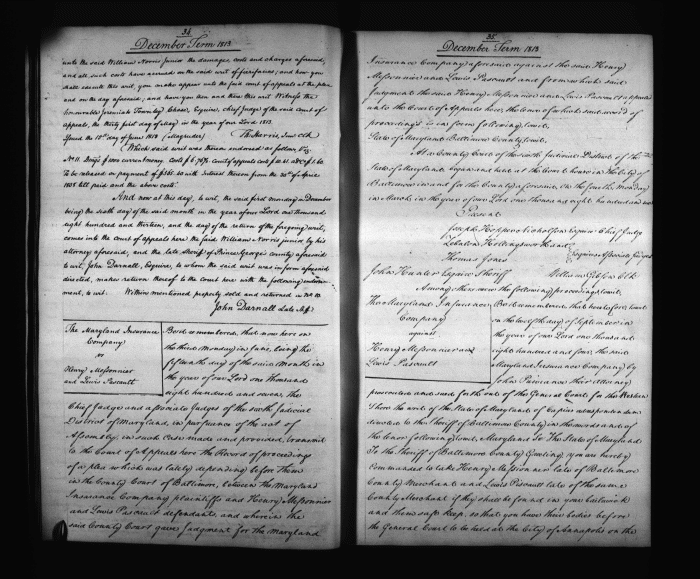 34
December Term 1813
unto the said William Norris Junior the damages, costs and charges aforesaid,
and all such costs have accrued on the said writ of fierifacias; and how you
shall execute this writ, you make appear unto the said court of appeals at the place
and on the day aforesaid; and have you then and there this writ. Witness the
honourable Jeremiah Townley Chase, Esquire, chief Judge of the said court of
appeals, the thirty first day of May in the year of our Lord 1813.
Issued the 10th day of June 1813 (Magruder) Th. Harris, Junr Clk
(Which said writ was thereon endorsed as follow, Viz
To be released on payment of with interest thereon from the of April
1805 till paid and the above costs.
And now at this day, to wit, the said first monday in December
being the sixth day of the said month in the year of our Lord one thousand
eight hundred and thirteen, and the day of the return of the foregoing writ,
comes into the court of appeals here the said William Norris junior by his
attorney aforesaid, and the late Sheriff of Prince George's county aforesaid
to wit, John Darnall, Esquire, to whom the said writ was in form aforesaid
directed, makes return thereof to the court here with the following endorse-
ment, to wit. Within mentioned property sold and returned in No 10.
John Darnall Late Shff
The Maryland Insurance
Company
vs
Henry Messonnier
and Lewis Pascault
Be it remembered, that now here on
the third Monday in June, being the
fifteenth day of the said Month in
the year of our Lord one thousand
eight hundred and seven the
Chief Judge and associate Judges of the sixth Judicial
District of Maryland, in pursuance of the act of
Assembly, in such case made and provided, transmit
to the Court of Appeals here the Record of proceedings
of a plea which was lately depending before them
in the County Court of Baltimore, between the Maryland
Insurance Company plaintiffs and Henry Messonnier
and Lewis Pascault defendants, and wherein the
said County Court gave Judgment for the Maryland
35
December Term 1813
Insurance Company aforesaid against the said Henry
Messonnier and Lewis Pascault and from which said
Judgment the said Henry Messonnier and Lewis Pascault appealed
unto the Court of Appeals here, the tenor of which said record of
proceedings is in form following, towit,
State of Maryland Baltimore County, towit,
At a County Court of the sixth Judicial District of the
State of Maryland began and held at the Court house in the City of
Baltimore in and for the County aforesaid on the fourth Monday
in March, in the year of our Lord one thousand eight hundred and seven
Present
Joseph Hopper Nicholson Esquire Chief Judge
Zebulon Hollingsworth and
Thomas Jones Esquires Associate Judges
John Hunter Esquire Sheriff William Gibson Clk
Among others were the following proceedings, towit,
The Maryland Insurance
Company
against
Henry Messonnier and
Lewis Pascault
Be it remembered that heretofore, towit
on the twelfth day of September in
the year of our Lord one thousand
eight hundred and four, the said
Maryland Insurance Company by
John Purviance their Attorney
prosecuted and sued forth out of the General Court for the Western
Shore the writ of the State of Maryland of Capias ad respondendum
directed to the Sheriff of Baltimore County in the words and of
the tenor following, towit, Maryland To The State of Maryland
To the Sheriff of Baltimore County Greeting, you are hereby
Commanded to take Henry Messonnier late of Baltimore
County Merchant and Lewis Pascault late of the same
County Merchant if they shall be found in your bailiwick
and them safe keep, so that you have their bodies before
the General Court to be held at the City of Annapolis on the